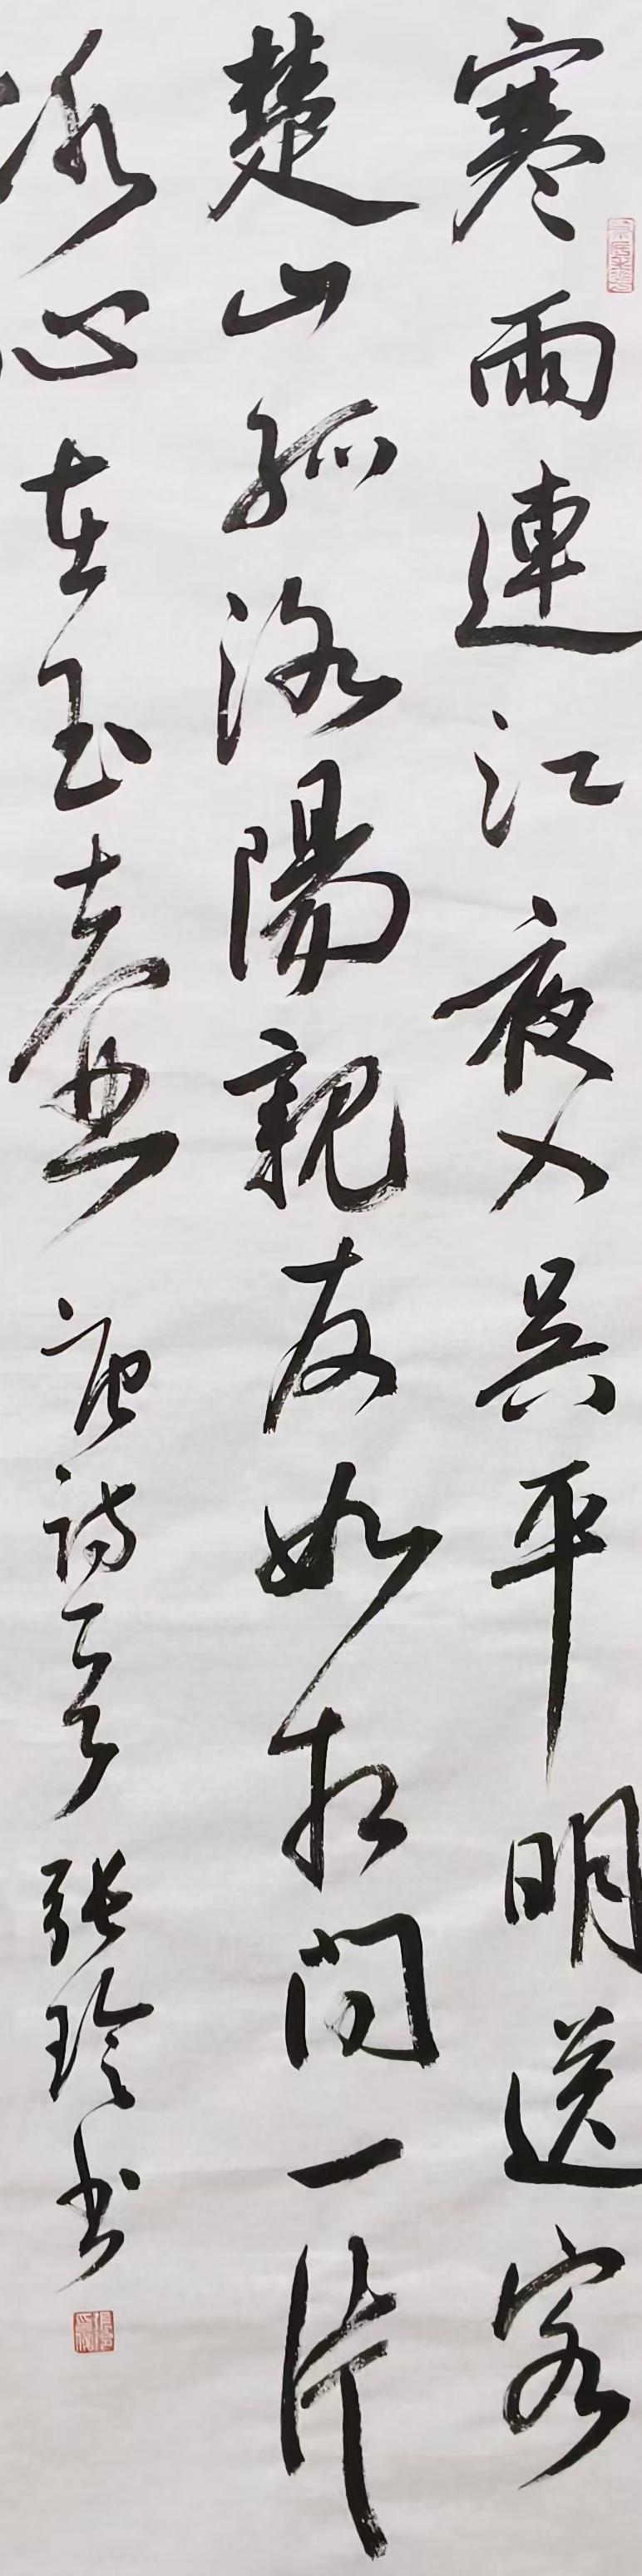 寒雨連江夜入吴平明送客
楚山孤洛陽親友如相问一片
冰心在玉壶 唐诗一首 张玲书